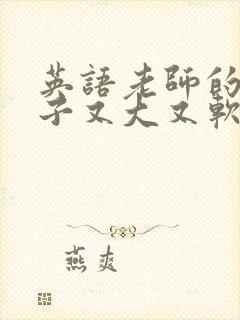 英語老師的
子又大又軟
燕爽